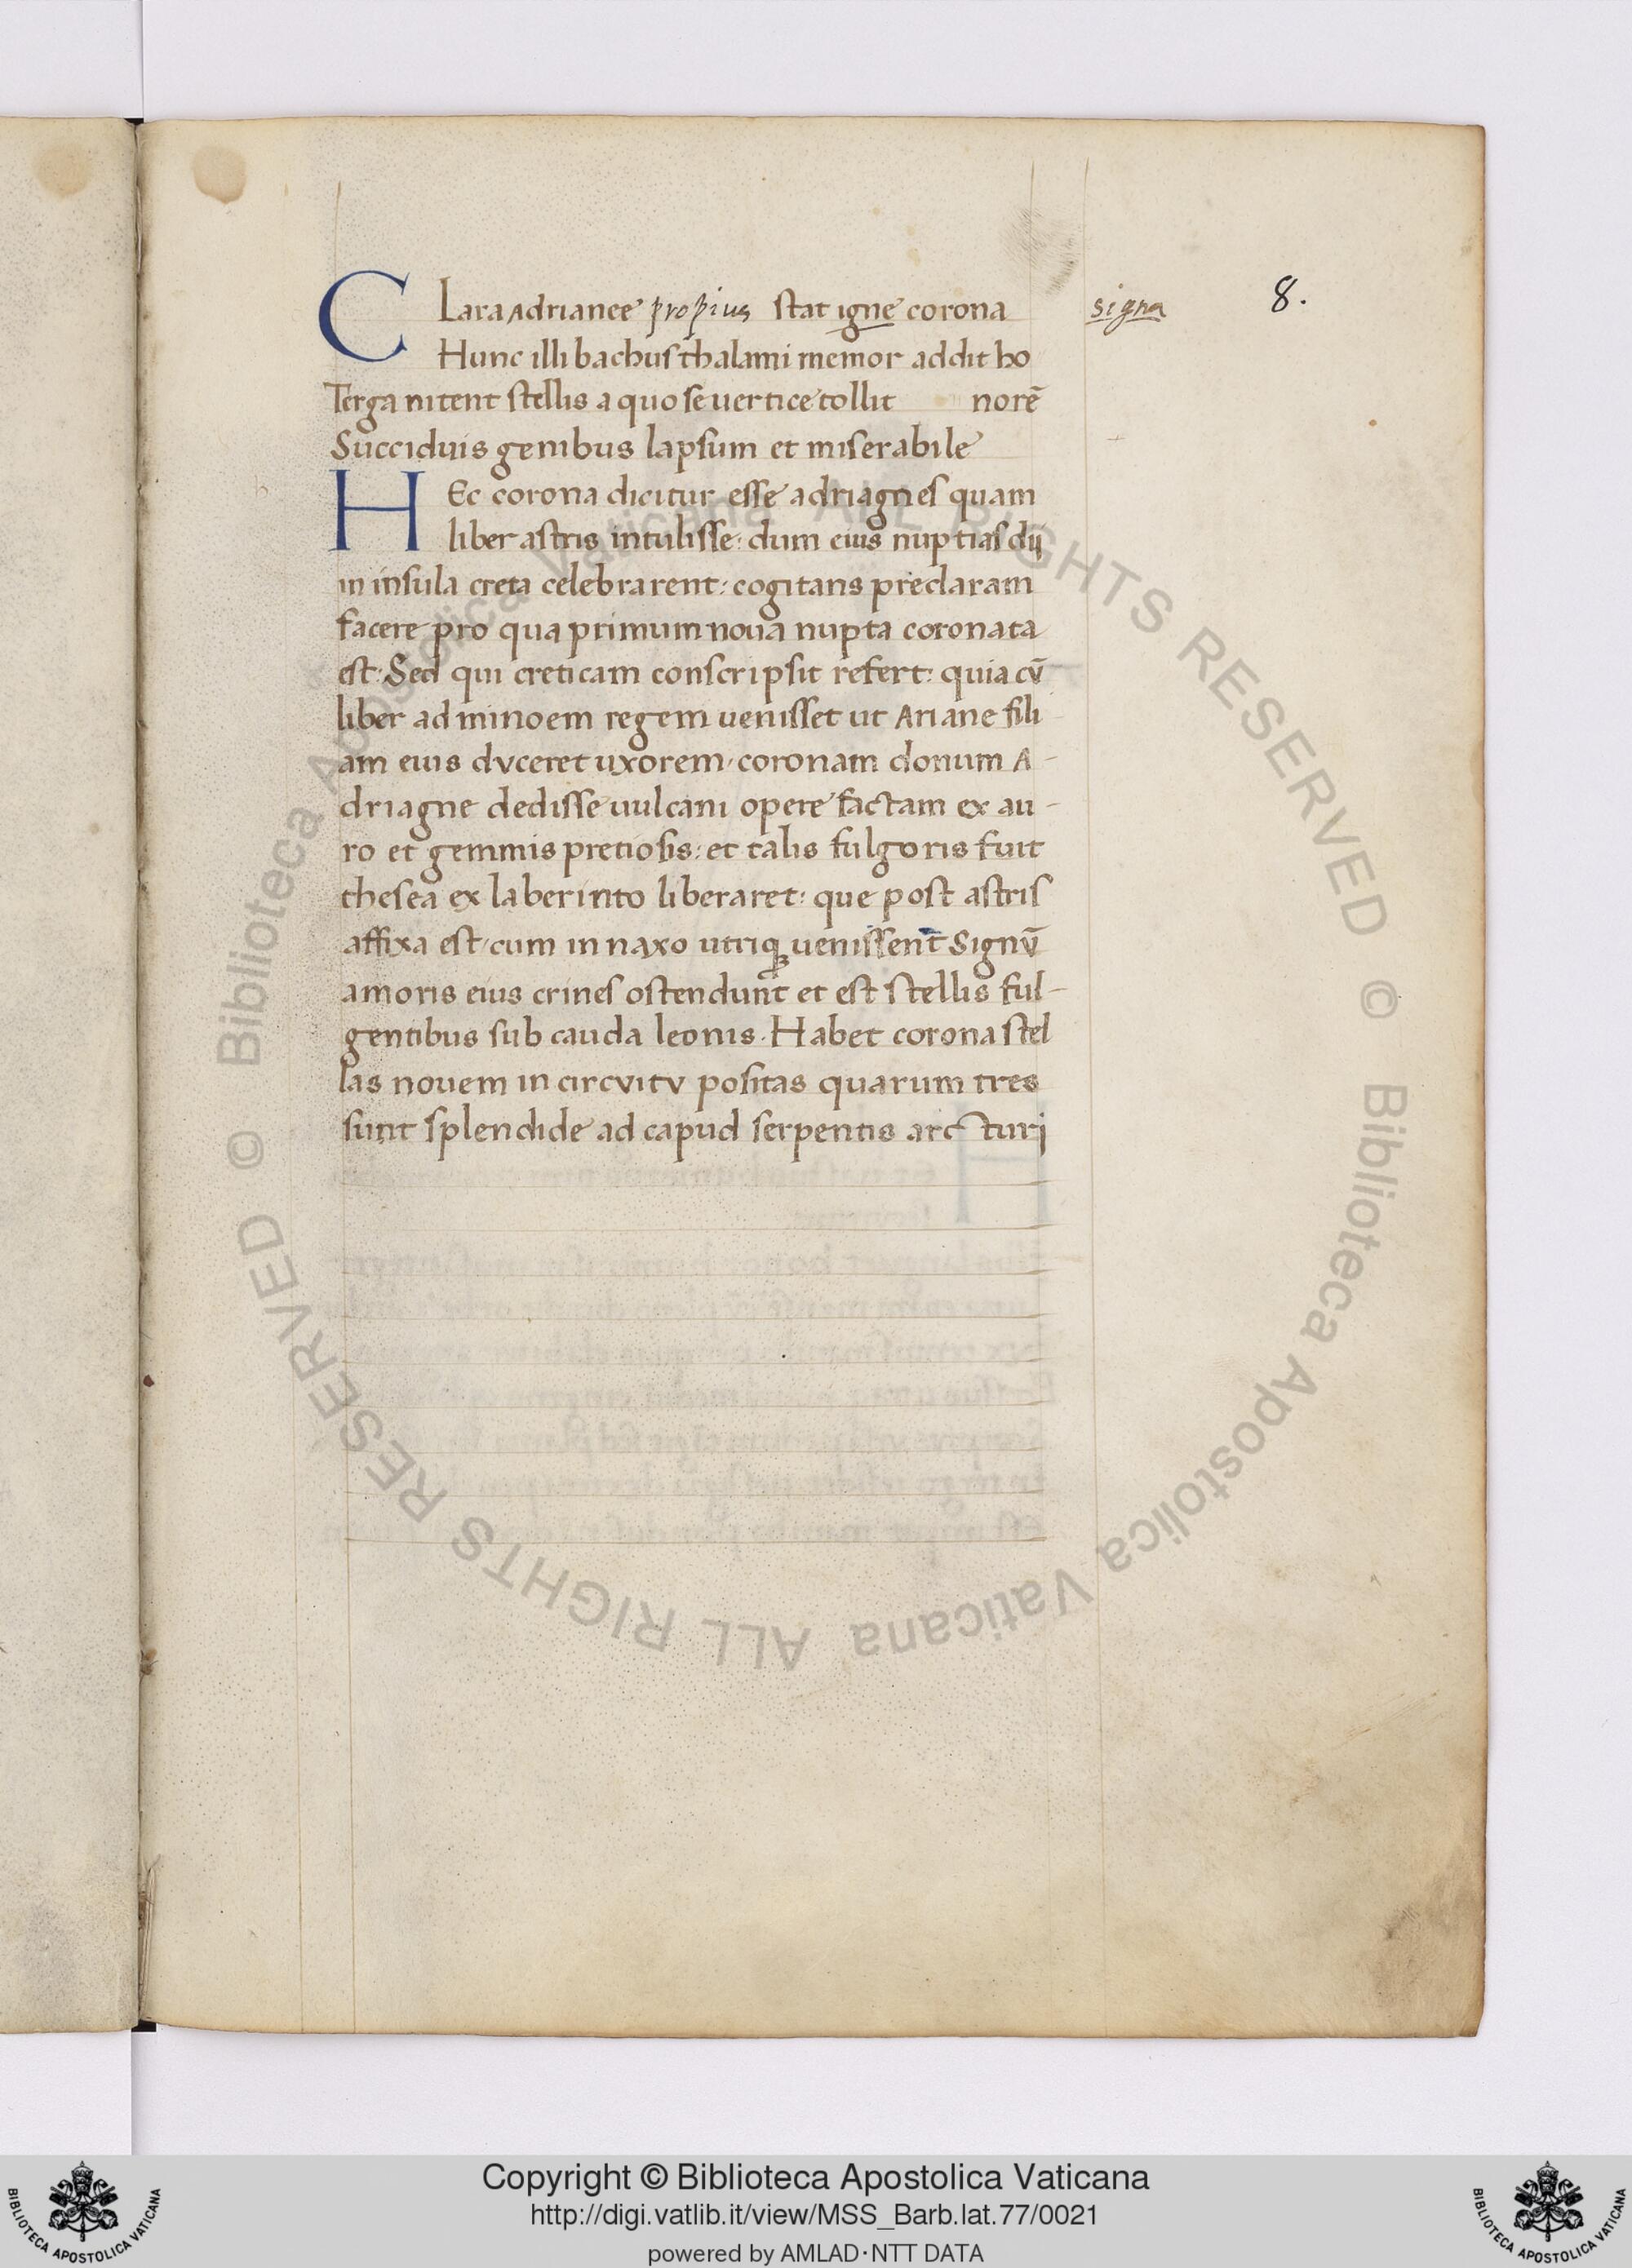 8.
CLara adrianee propius stat igne corona signa
Hunc illi bachus thalami memor addit ho
Terga nitent stellis a quo se uertice tollit norē
Succiduis genibus lapsum et miserabile
HEc corona dicitur esse adriagnes quam
liber astris intulisse: dum eius nuptias dij
in insula creta celebrarent: cogitans preclaram
facere pro qua primum noua nupta coronata
est: Sed qui creticam conscripsit refert: quia cū
liber ad minoem regem uenisset ut Ariane fili
am eius dvceret uxorem, coronam donum A-
driagne dedisse uulcani opere factam ex au-
ro et gemmis pretiosis: et talis fulgoris fuit
thesea ex laberinto liberaret: que post astris
affixa est, cum in naxo utriqȝ uenissent Signū
amoris eius crines ostendunt et est stellis ful-
gentibus sub cauda leonis. Habet corona stel
las nouem in circvitv positas quarum tres
sunt splendide ad capud serpentis arcturj
© Biblioteca Apostolica Vaticana ALL RIGHTS RESERVED
© Biblioteca Apostolica Vaticana ALL RIGHTS RESERVED
Copyright © Biblioteca Apostolica Vaticana
http://digi.vatlib.it/view/MSS_Barb.lat.77/0021
powered by AMLAD·NTT DATA
BIBLIOTECA APOSTOLICA VATICANA
BIBLIOTECA APOSTOLICA VATICANA